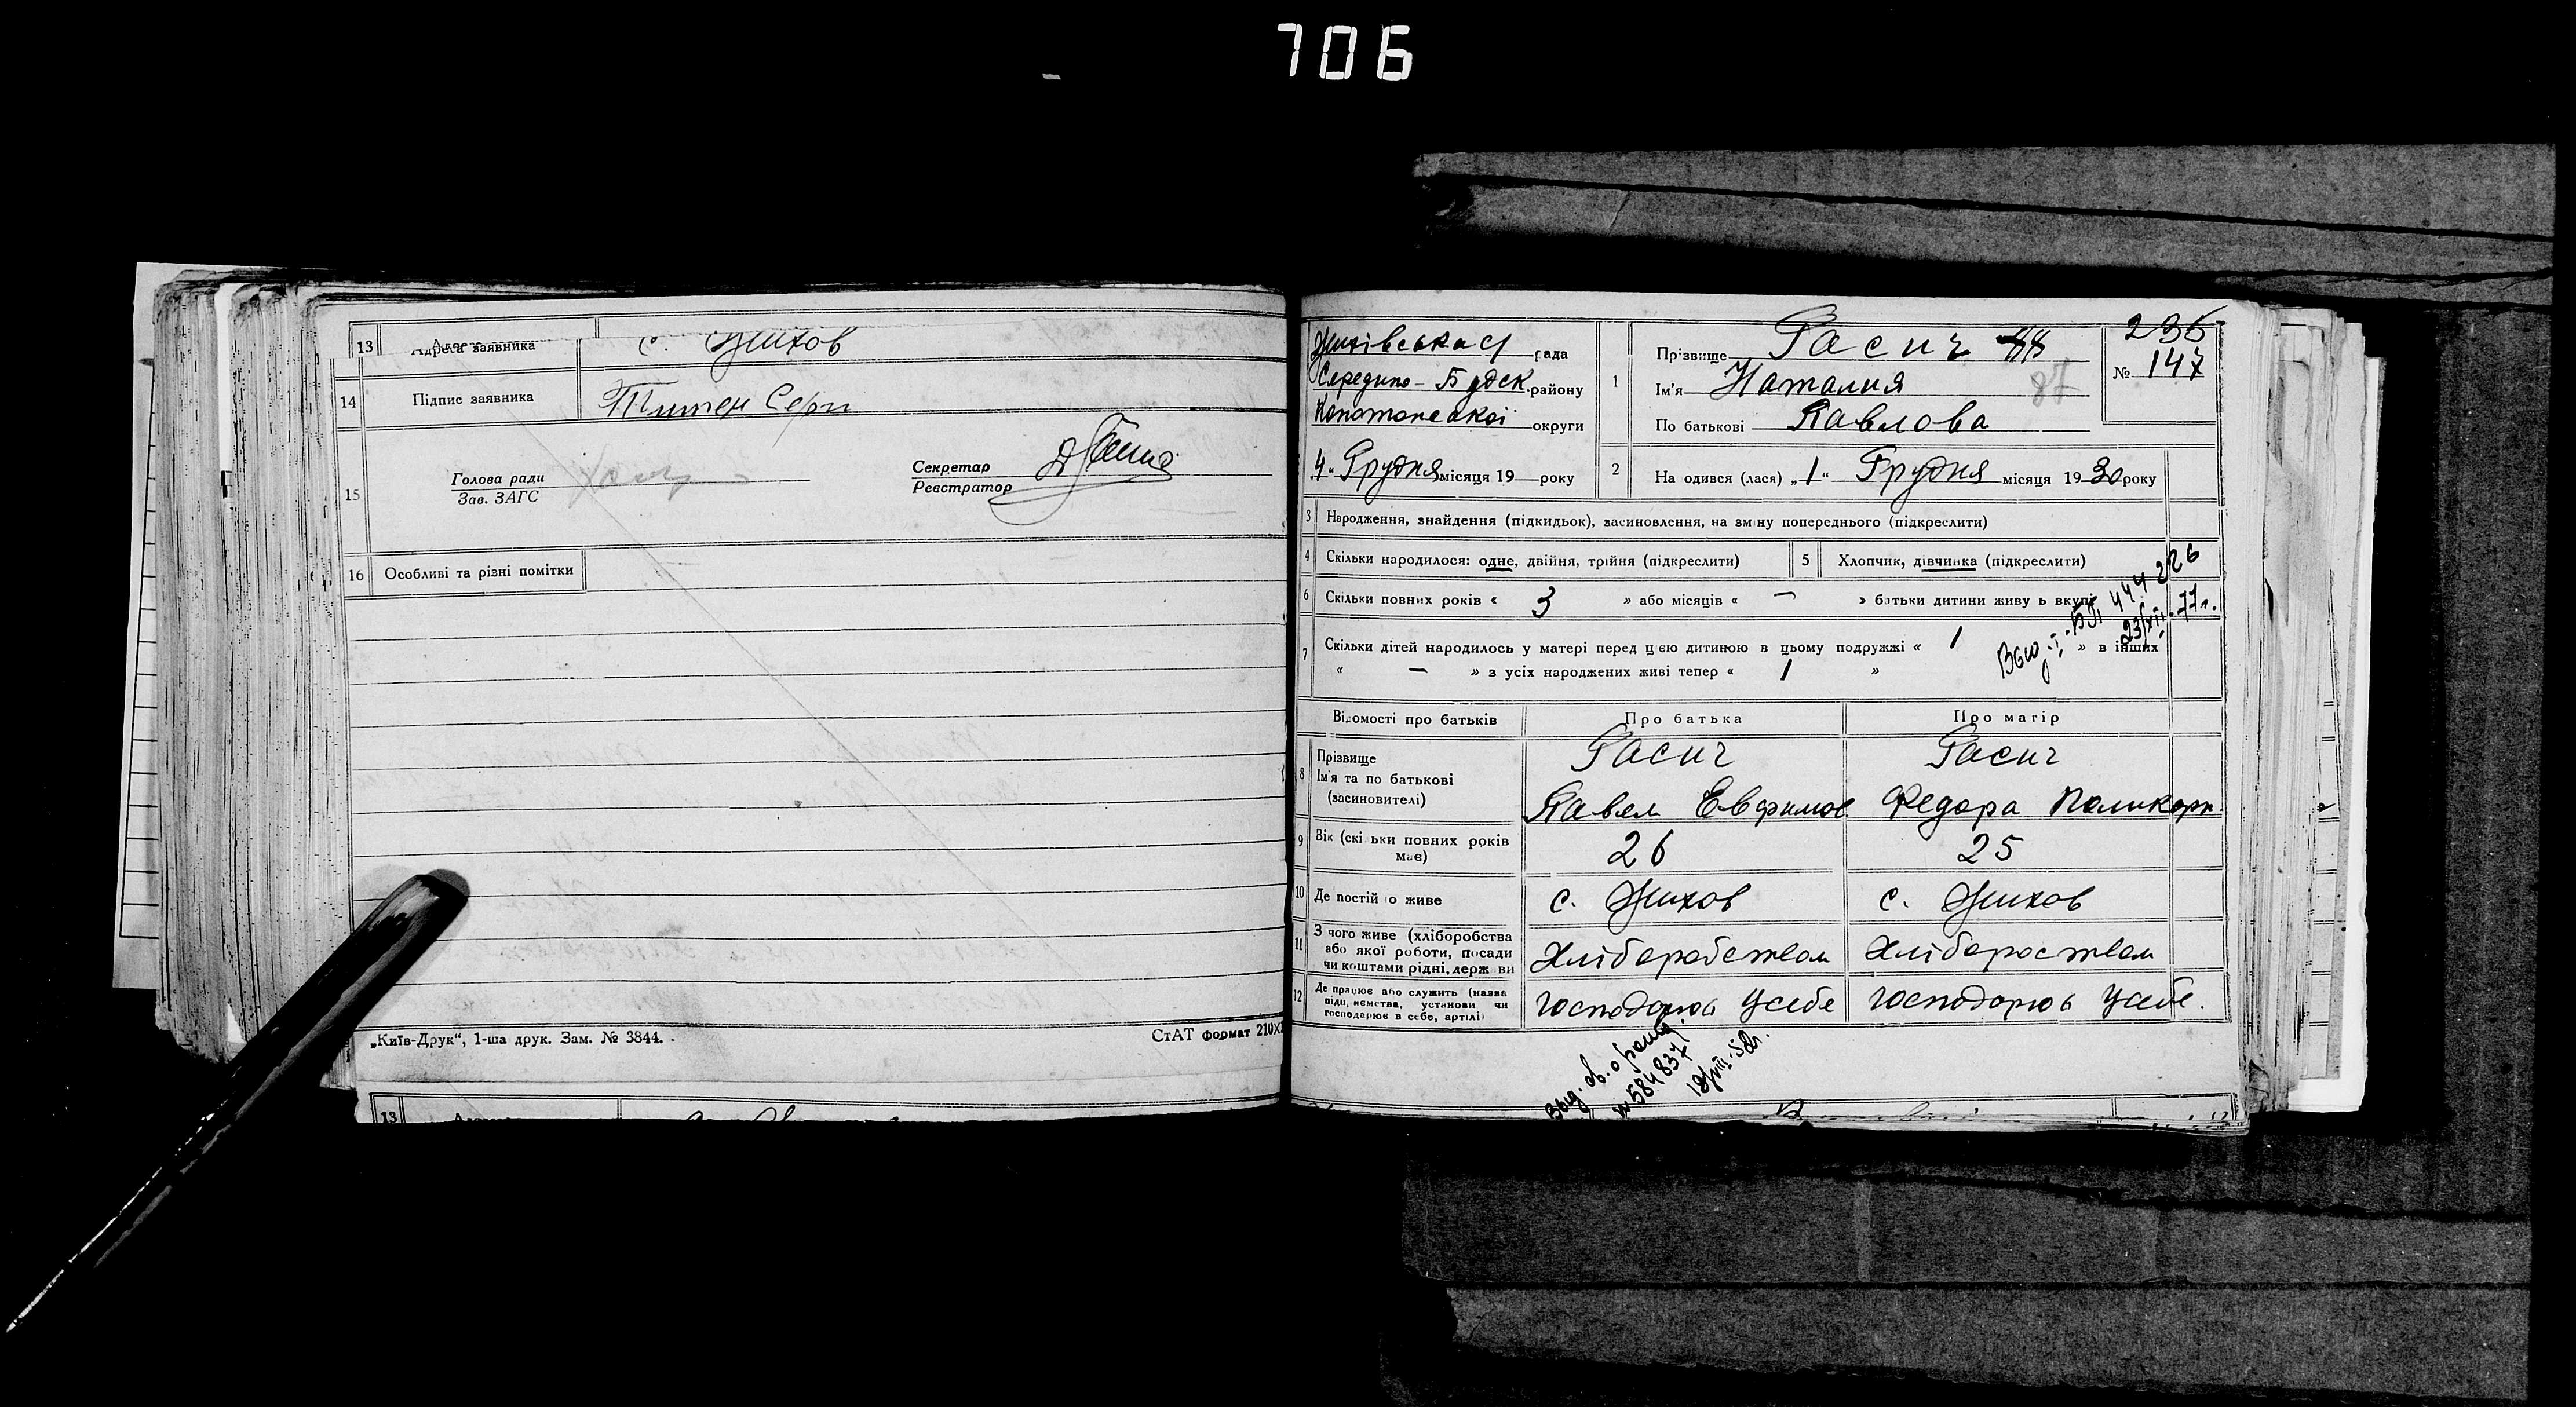 706
13 Адреса заявника с. Жихов
14 Підпис заявника
15 Голова ради
Зав. ЗАГС
Секретар
Реєстратор
16 Особливі та різні помітки
„Київ-Друк“, 1-ша друк. Зам. № 3844.
СтАТ формат 210X
13
Жихівська рада
Середино-Будск. району
Конотопської округи
4 „ Грудня місяця 19 року
1 Прізвище Гасич 88
Ім'я Наталия 87
По батькові Павлова
236
№ 147
2 На одився (лася) „1“ Грудня місяця 1930 року
3 Народження, знайдення (підкидьок), засиновлення, на зміну попереднього (підкреслити)
4 Скільки народилося: одне, двійня, трійня (підкреслити)
5 Хлопчик, дівчинка (підкреслити)
6 Скільки повних років « 3 » або місяців « — » батьки дитини живу ь вкупі
7 Скільки дітей народилось у матері перед цією дитиною в цьому подружжі « 1 » в інших
« — » з усіх народжених живі тепер « 1 »
444 226
23/XII-77 г.
Відомості про батьків Про батька Про матір
8 Прізвище
Ім'я та по батькові
(засиновителі)
Гасич Гасич
Павел Евфимов Федора Поликарп.
9 Вік (скі ьки повних років
має)
26 25
10 Де постій о живе с. Жихов с. Жихов
11 З чого живе (хліборобства
або якої роботи, посади
чи коштами рідні, держ ви
Хліборобством Хлібороством
12 Де працює або служить (назва
підп, иємства, установи чи
господарює в себе, артілі)
господорює у себе господорює у себе.
выд. св. о рожд.
№ 584837